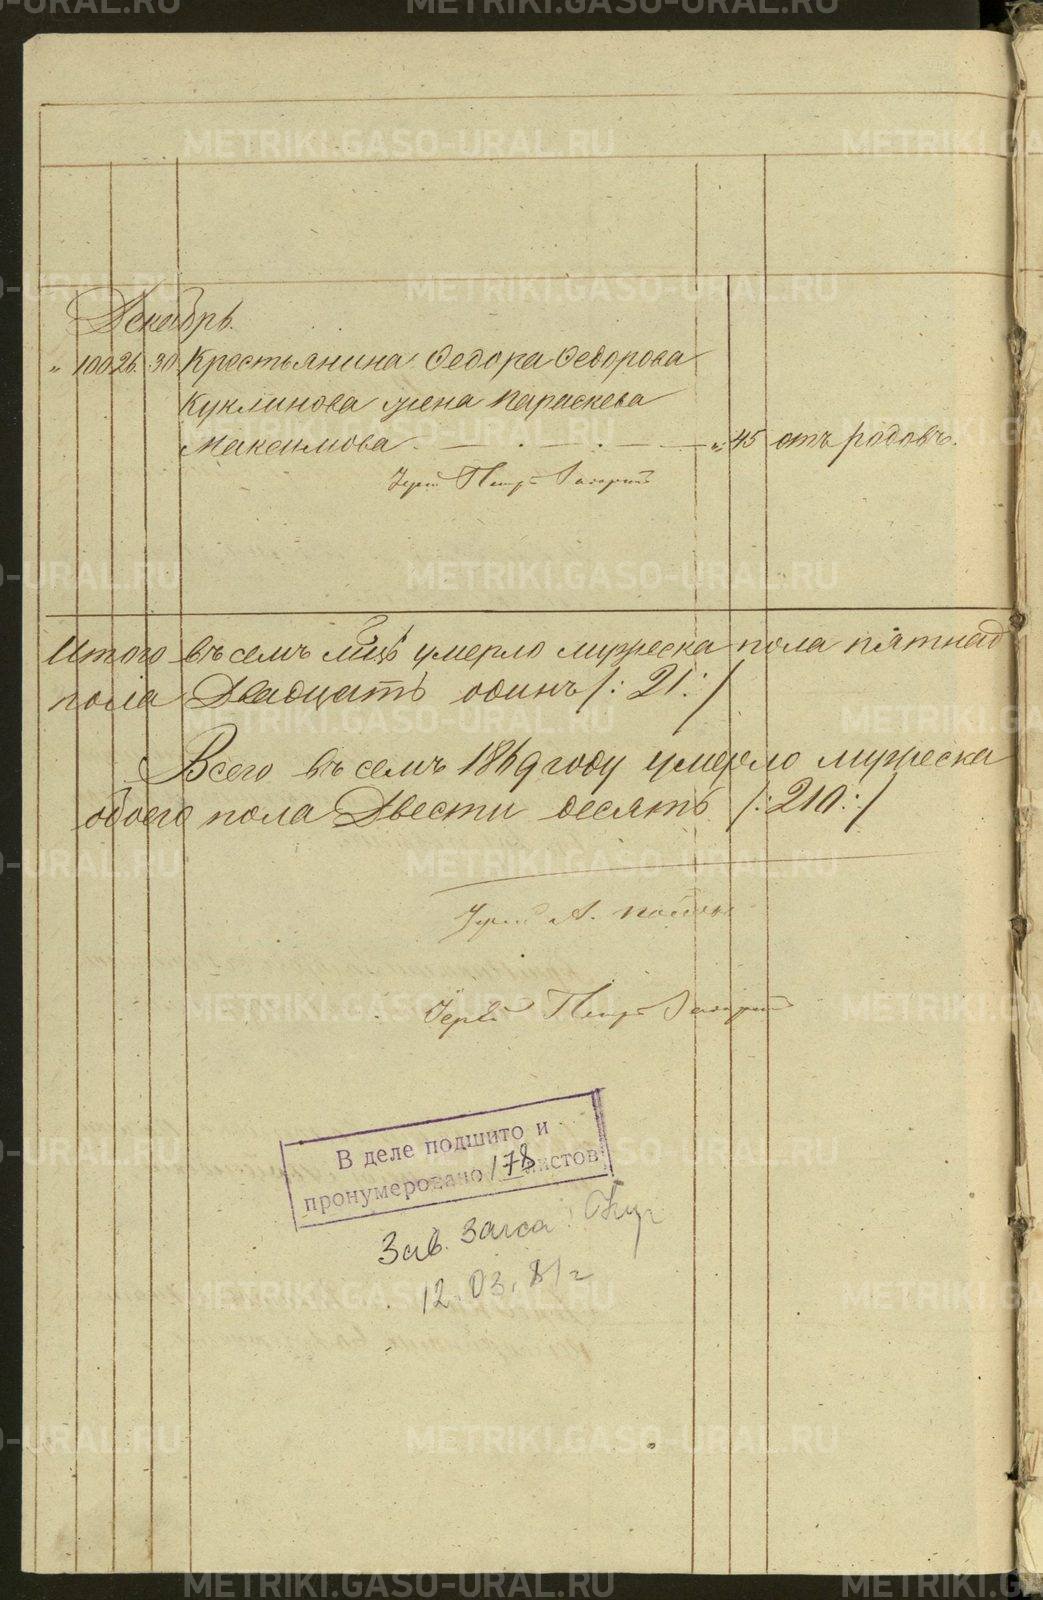 Декабрь.
" 100 26. 30 Крестьянина Ѳедора Ѳедорова
Куклинова жена Параскева
Максимова. — . — . — — " 45 отъ родовъ.
Іерей Петръ
Итого въ семъ мцѣ умерло мужеска пола пятнад
пола Двадцать одинъ /: 21: /
Всего въ семъ 1869 году умерло мужеска
обоего пола Двести десять /: 210: /
Іерей А. Поповъ
Іерей Петръ
В деле подшито и
пронумеровано 178 листов
Зав. Загса
12.03.81г
METRIKI.GASO-URAL.RU